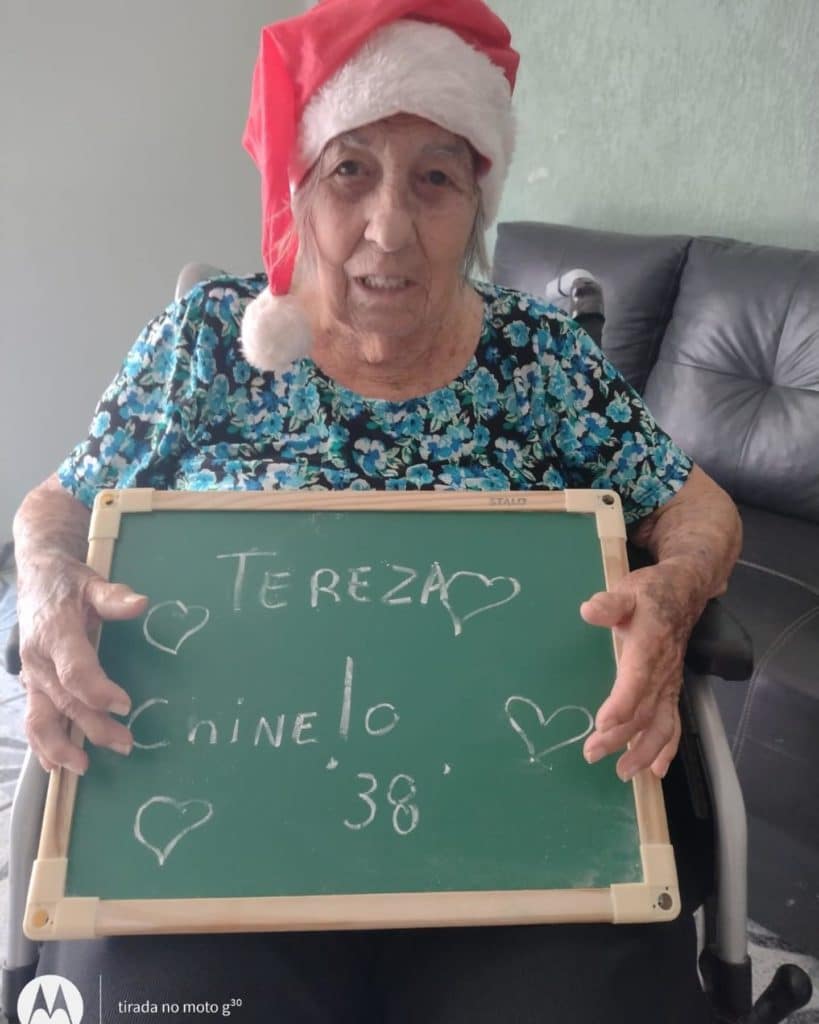 STALO
TEREZA
CHINElo
38
tirada no moto g³⁰